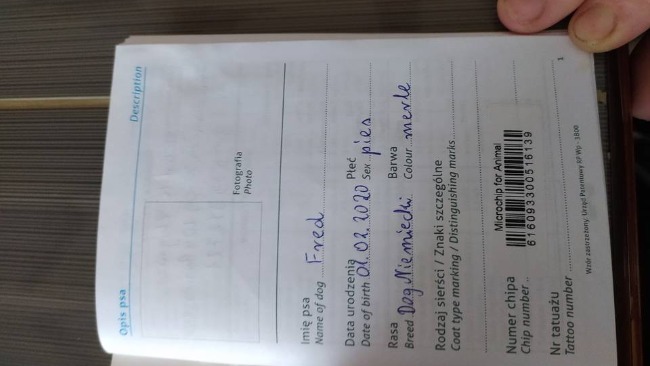 Opis psa Description
Fotografia
Photo
Imię psa
Name of dog Fred
Data urodzenia Płeć
Date of birth 01.02.2020 Sex pies
Rasa Barwa
Breed Dog Niemiecki Colour merle
Rodzaj sierści / Znaki szczególne
Coat type marking / Distinguishing marks
Microchip for Animal
Numer chipa
Chip number 616093300516139
Nr tatuażu
Tattoo number
1
Wzór zastrzeżony. Urząd Patentowy RP Wp - 1800